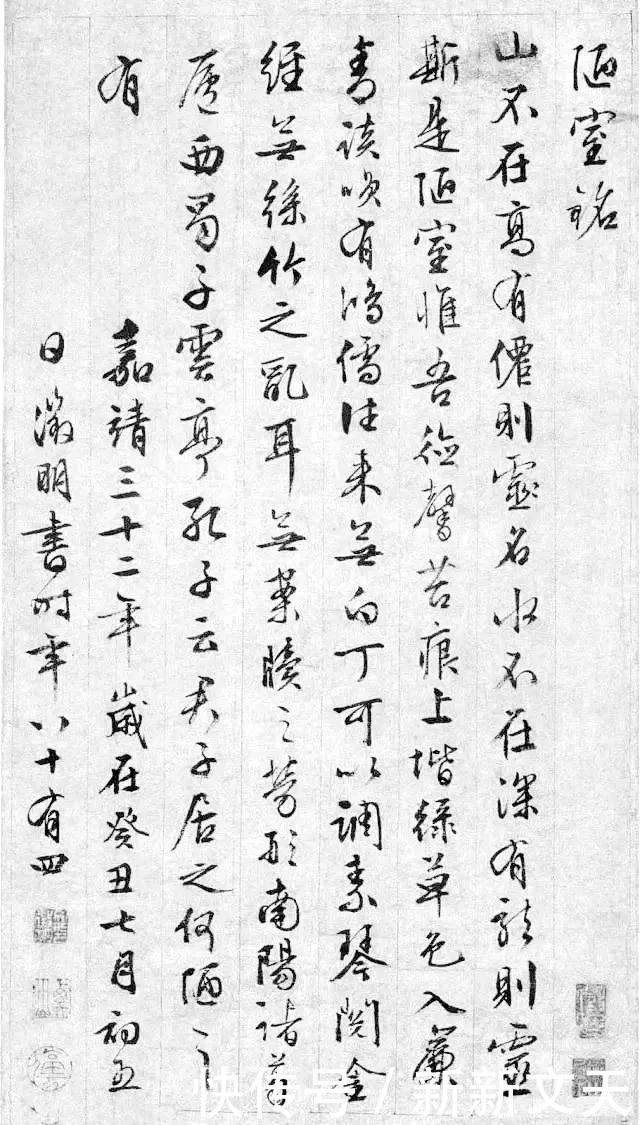 陋室銘
山不在高有僊則靈名水不在深有龍則靈
斯是陋室惟吾德馨苔痕上堦綠草色入簾
青談咲有鴻儒往来無白丁可以調素琴閱金
經無絲竹之亂耳無案牘之勞形南陽諸葛
廬西蜀子雲亭孔子云君子居之何陋之
有
嘉靖三十二年歲在癸丑七月初五
日徵明書時年八十有四
快传号 / 新新文天